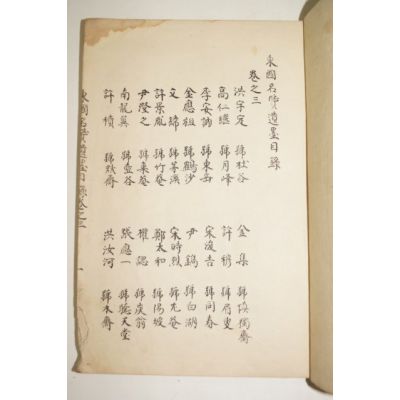 東國名賢遺墨目錄
卷之三
洪宇定 號杜谷 金集 號愼獨齋
高仁繼 號月峰 許穆 號眉叟
李安訥 號東岳 宋浚吉 號同春
金應祖 號鶴沙 尹鑴 號白湖
文緯 號茅溪 宋時烈 號尤菴
許景胤 號竹菴 鄭太和 號陽坡
尹澄之 號巢菴 權諰 號炭翁
南龍翼 號壺谷 張應一 號聽天堂
許積 號默齋 洪汝河 號木齋
東國名賢遺墨目錄卷之三 一